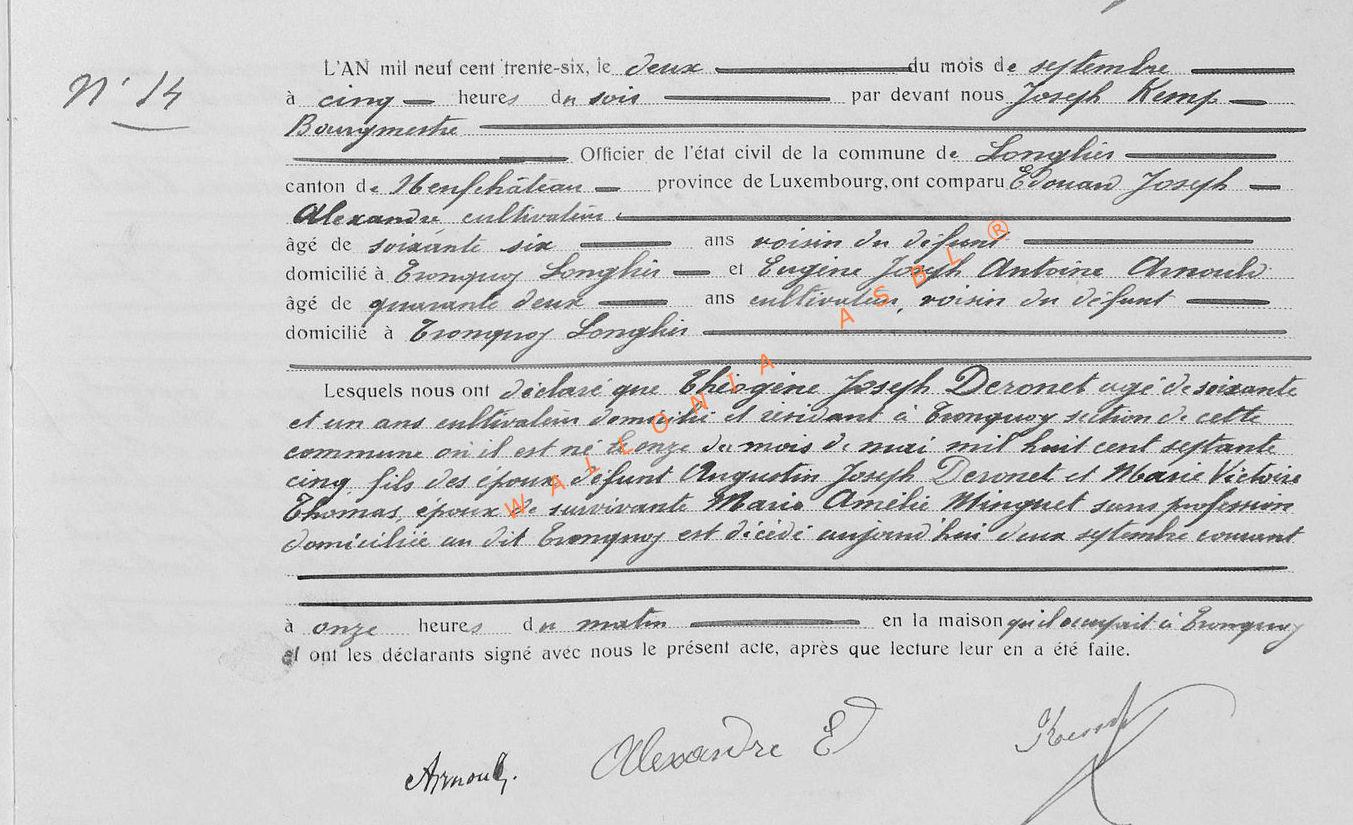 N° 14
L'AN mil neuf cent trente-six, le deux du mois de septembre
à cinq heures du soir par devant nous Joseph Kemp
Bourgmestre
Officier de l'état civil de la commune de Longlier
canton de Neufchâteau province de Luxembourg, ont comparu Edouard Joseph
Alexandre cultivateur
âgé de soixante six ans voisin du défunt
domicilié à Tronquoy Longlier et Eugène Joseph Antoine Arnould
âgé de quarante deux ans cultivateur, voisin du défunt
domicilié à Tronquoy Longlier
Lesquels nous ont déclaré que Théogène Joseph Deronet agé de soixante
et un ans cultivateur domicilié et résidant à Tronquoy section de cette
commune où il est né le onze du mois de mai mil huit cent septante
cinq, fils des époux défunt Augustin Joseph Deronet et Marie Victoire
Thomas, époux de survivante Marie Amélie Minguet sans profession
domiciliée au dit Tronquoy est décédé aujourd'hui deux septembre courant
à onze heures du matin en la maison qu'il occupait à Tronquoy
et ont les déclarants signé avec nous le présent acte, après que lecture leur en a été faite.
Arnould. Alexandre E Kemp
WALLONIA ASBL ®